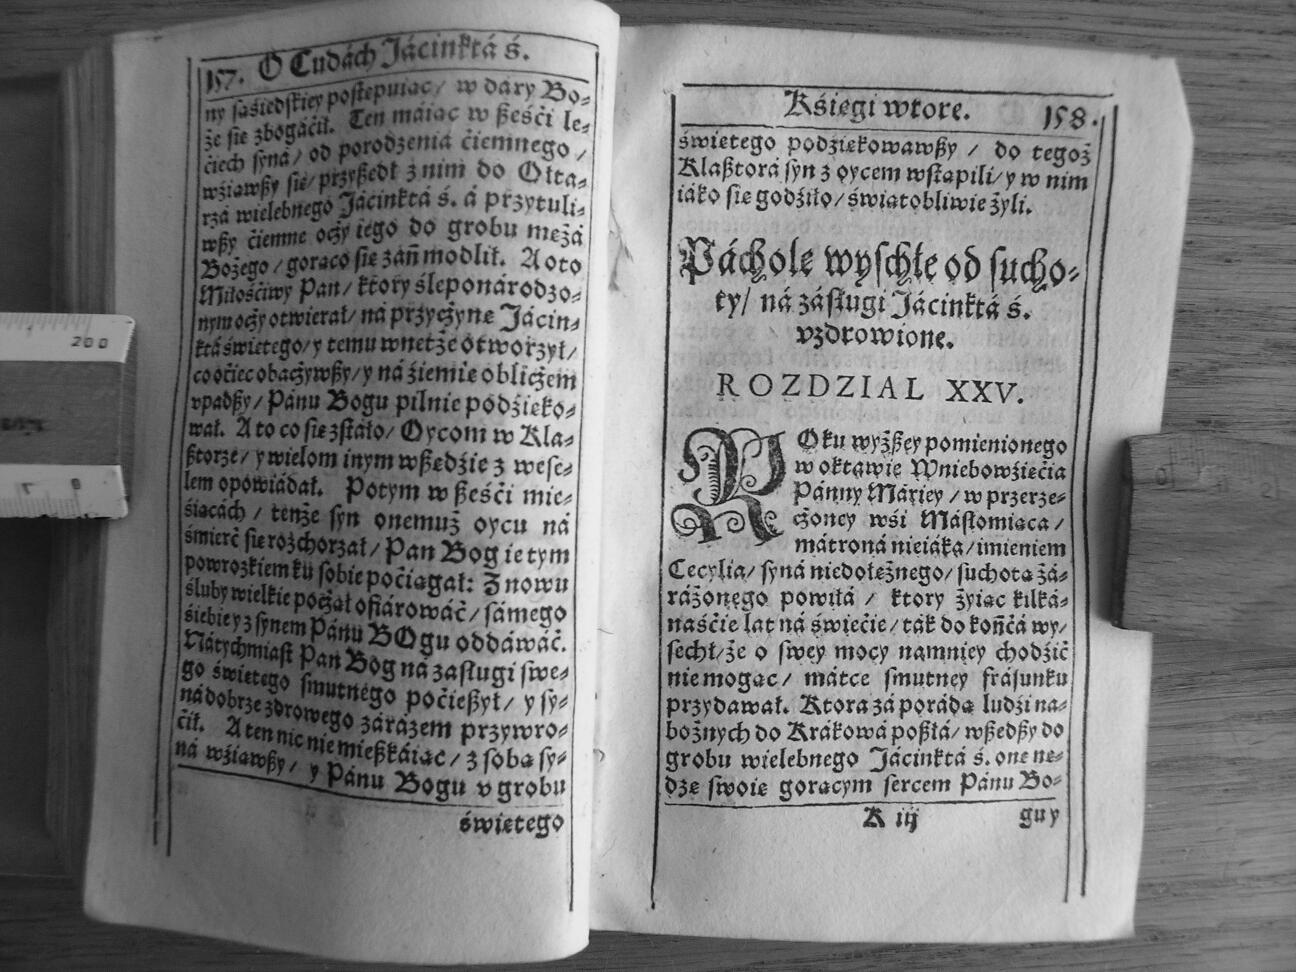 157. O Cudách Jácinktá ś.
ny sąśiedskiey postępuiąc / w dary Bo-
że się zbogáćił. Ten máiąc w sześći le-
ćiech syná / od porodzenia ćiemnego /
wźiąwszy się / przyszedł z nim do Ołta-
rzá wielebnego Jácinktá ś. á przytuli-
wszy ćiemne oczy iego do grobu mężá
Bożego / gorąco się zań modlił. A oto
Miłośćiwy Pan / ktory śleponárodzo-
nym oczy otwierał / ná przyczynę Jácin-
ktá świętego / y temu wnetże otworzył /
co oćiec obaczywszy / y ná źiemię obliczem
vpadszy / Pánu Bogu pilnie podźięko-
wał. A to co się zstáło / Oycom w Kla-
sztorze / y wielom inym wszędźie z wese-
lem opowiádał. Potym w sześći mie-
śiącách / tenże syn onemuż oycu ná
śmierć się rozchorzał / Pan Bog ie tym
powrozkiem ku sobie poćiągał: Znowu
śluby wielkie począł ofiárowáć / sámego
śiebie y z synem Pánu BOgu oddáwáć.
Nátychmiast Pan Bog ná zasługi swe-
go świętego smutnego poćieszył / y sy-
ná dobrze zdrowego zárázem przywro-
ćił. A ten nic nie mieszkáiąc / z sobą sy-
ná wźiąwszy / y Pánu Bogu v grobu
świętego
Kśięgi wtore. 158.
świętego podźiękowawszy / do tegoż
Klasztorá syn z oycem wstąpili / y w nim
iáko się godźiło / świątobliwie żyli.
Páchole wyschłe od sucho-
ty / ná zásługi Jácinktá ś.
vzdrowione.
ROZDZIAL XXV.
ROku wyższey pomienionego
w oktawię Wniebowźięćia
Pánny Máriey / w przerze-
czoney wśi Mástomiącá /
mátroná nieiáka / imieniem
Cecylia / syná niedołężnego / suchotą zá-
rázonęgo powiłá / ktory żyiąc kilká-
naśćie lat ná świećie / ták do kończá wy-
sechł / że o swey mocy namniey chodźić
nie mogąc / mátce smutney frásunku
przydawał. Ktora zá porádą ludźi na-
bożnych do Krákowá poszłá / wszedszy do
grobu wielebnego Jácinktá ś. onę nę-
dzę swoię gorącym sercem Pánu Bo-
K iij guy
200